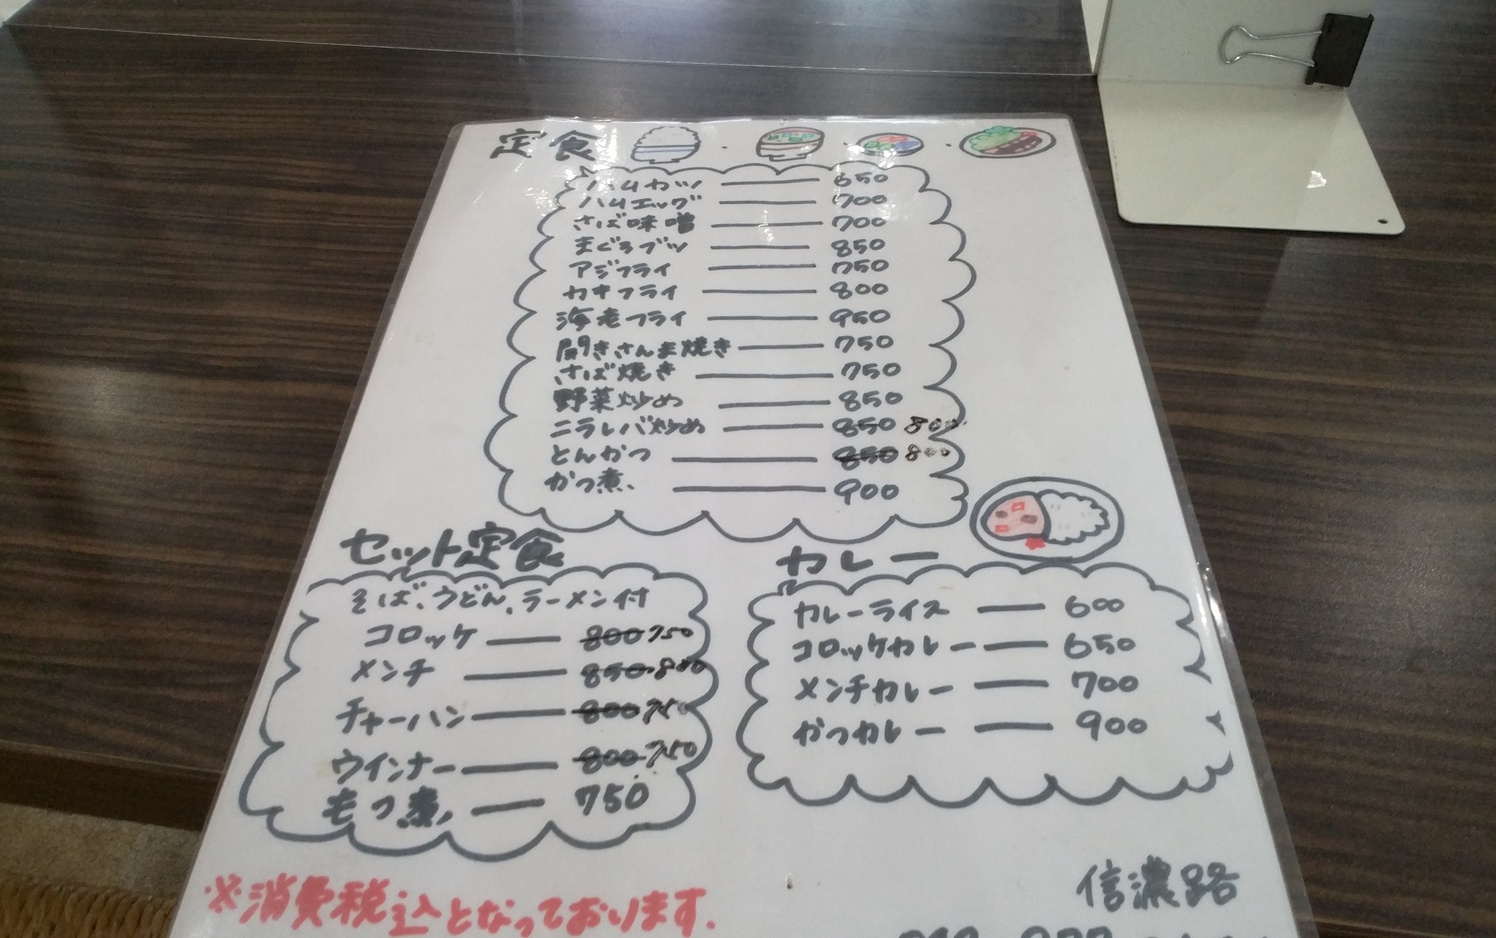 定食
ハムカツ 650
ハムエッグ 700
さば味噌 700
まぐろブツ 850
アジフライ 750
カキフライ 800
海老フライ 950
開きさんま焼き 750
さば焼き 750
野菜炒め 850
ニラレバ炒め 850 800
とんかつ 850 800
かつ煮 900
セット定食
そば、うどん、ラーメン付
コロッケ 800 750
メンチ 850 800
チャーハン 800 750
ウインナー 800 750
もつ煮 750
カレー
カレーライス 600
コロッケカレー 650
メンチカレー 700
かつカレー 900
※消費税込となっております.
信濃路